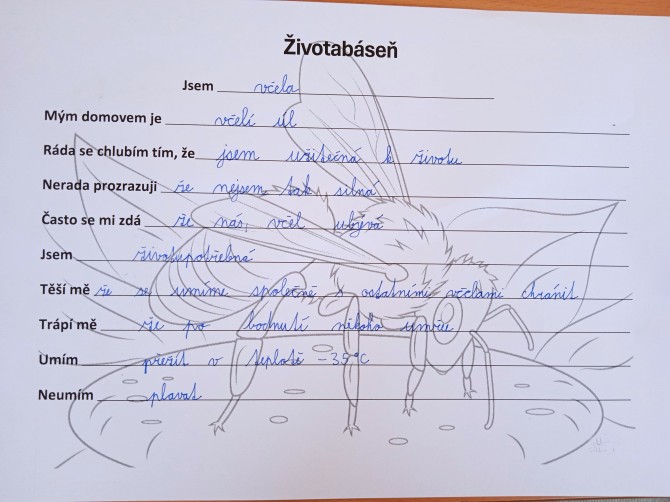 Životabáseň
Jsem včela
Mým domovem je včelí úl
Ráda se chlubím tím, že jsem užitečná k životu
Nerada prozrazuji že nejsem tak silná
Často se mi zdá že nás, včel ubývá
Jsem životupotřebná
Těší mě že se umíme společně s ostatními včelami chránit
Trápí mě že po bodnutí někoho umřu
Umím přežít v teplotě -39°C
Neumím plavat